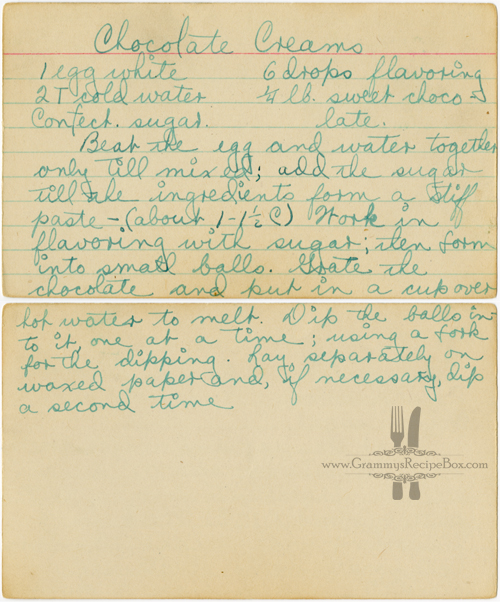 Chocolate Creams
1 egg white 6 drops flavoring
2 T cold water 1/4 lb. sweet choco-
Confect. sugar. late.
Beat the egg and water together
only till mixed; add the sugar
till the ingredients form a stif
paste - (about 1 - 1 1/2 C) Work in
flavoring with sugar; then form
into small balls. Grate the
chocolate and put in a cup over
hot water to melt. Dip the balls in-
to it, one at a time; using a fork
for the dipping. Lay separately on
waxed paper and, if necessary, dip
a second time
www.GrammysRecipeBox.com